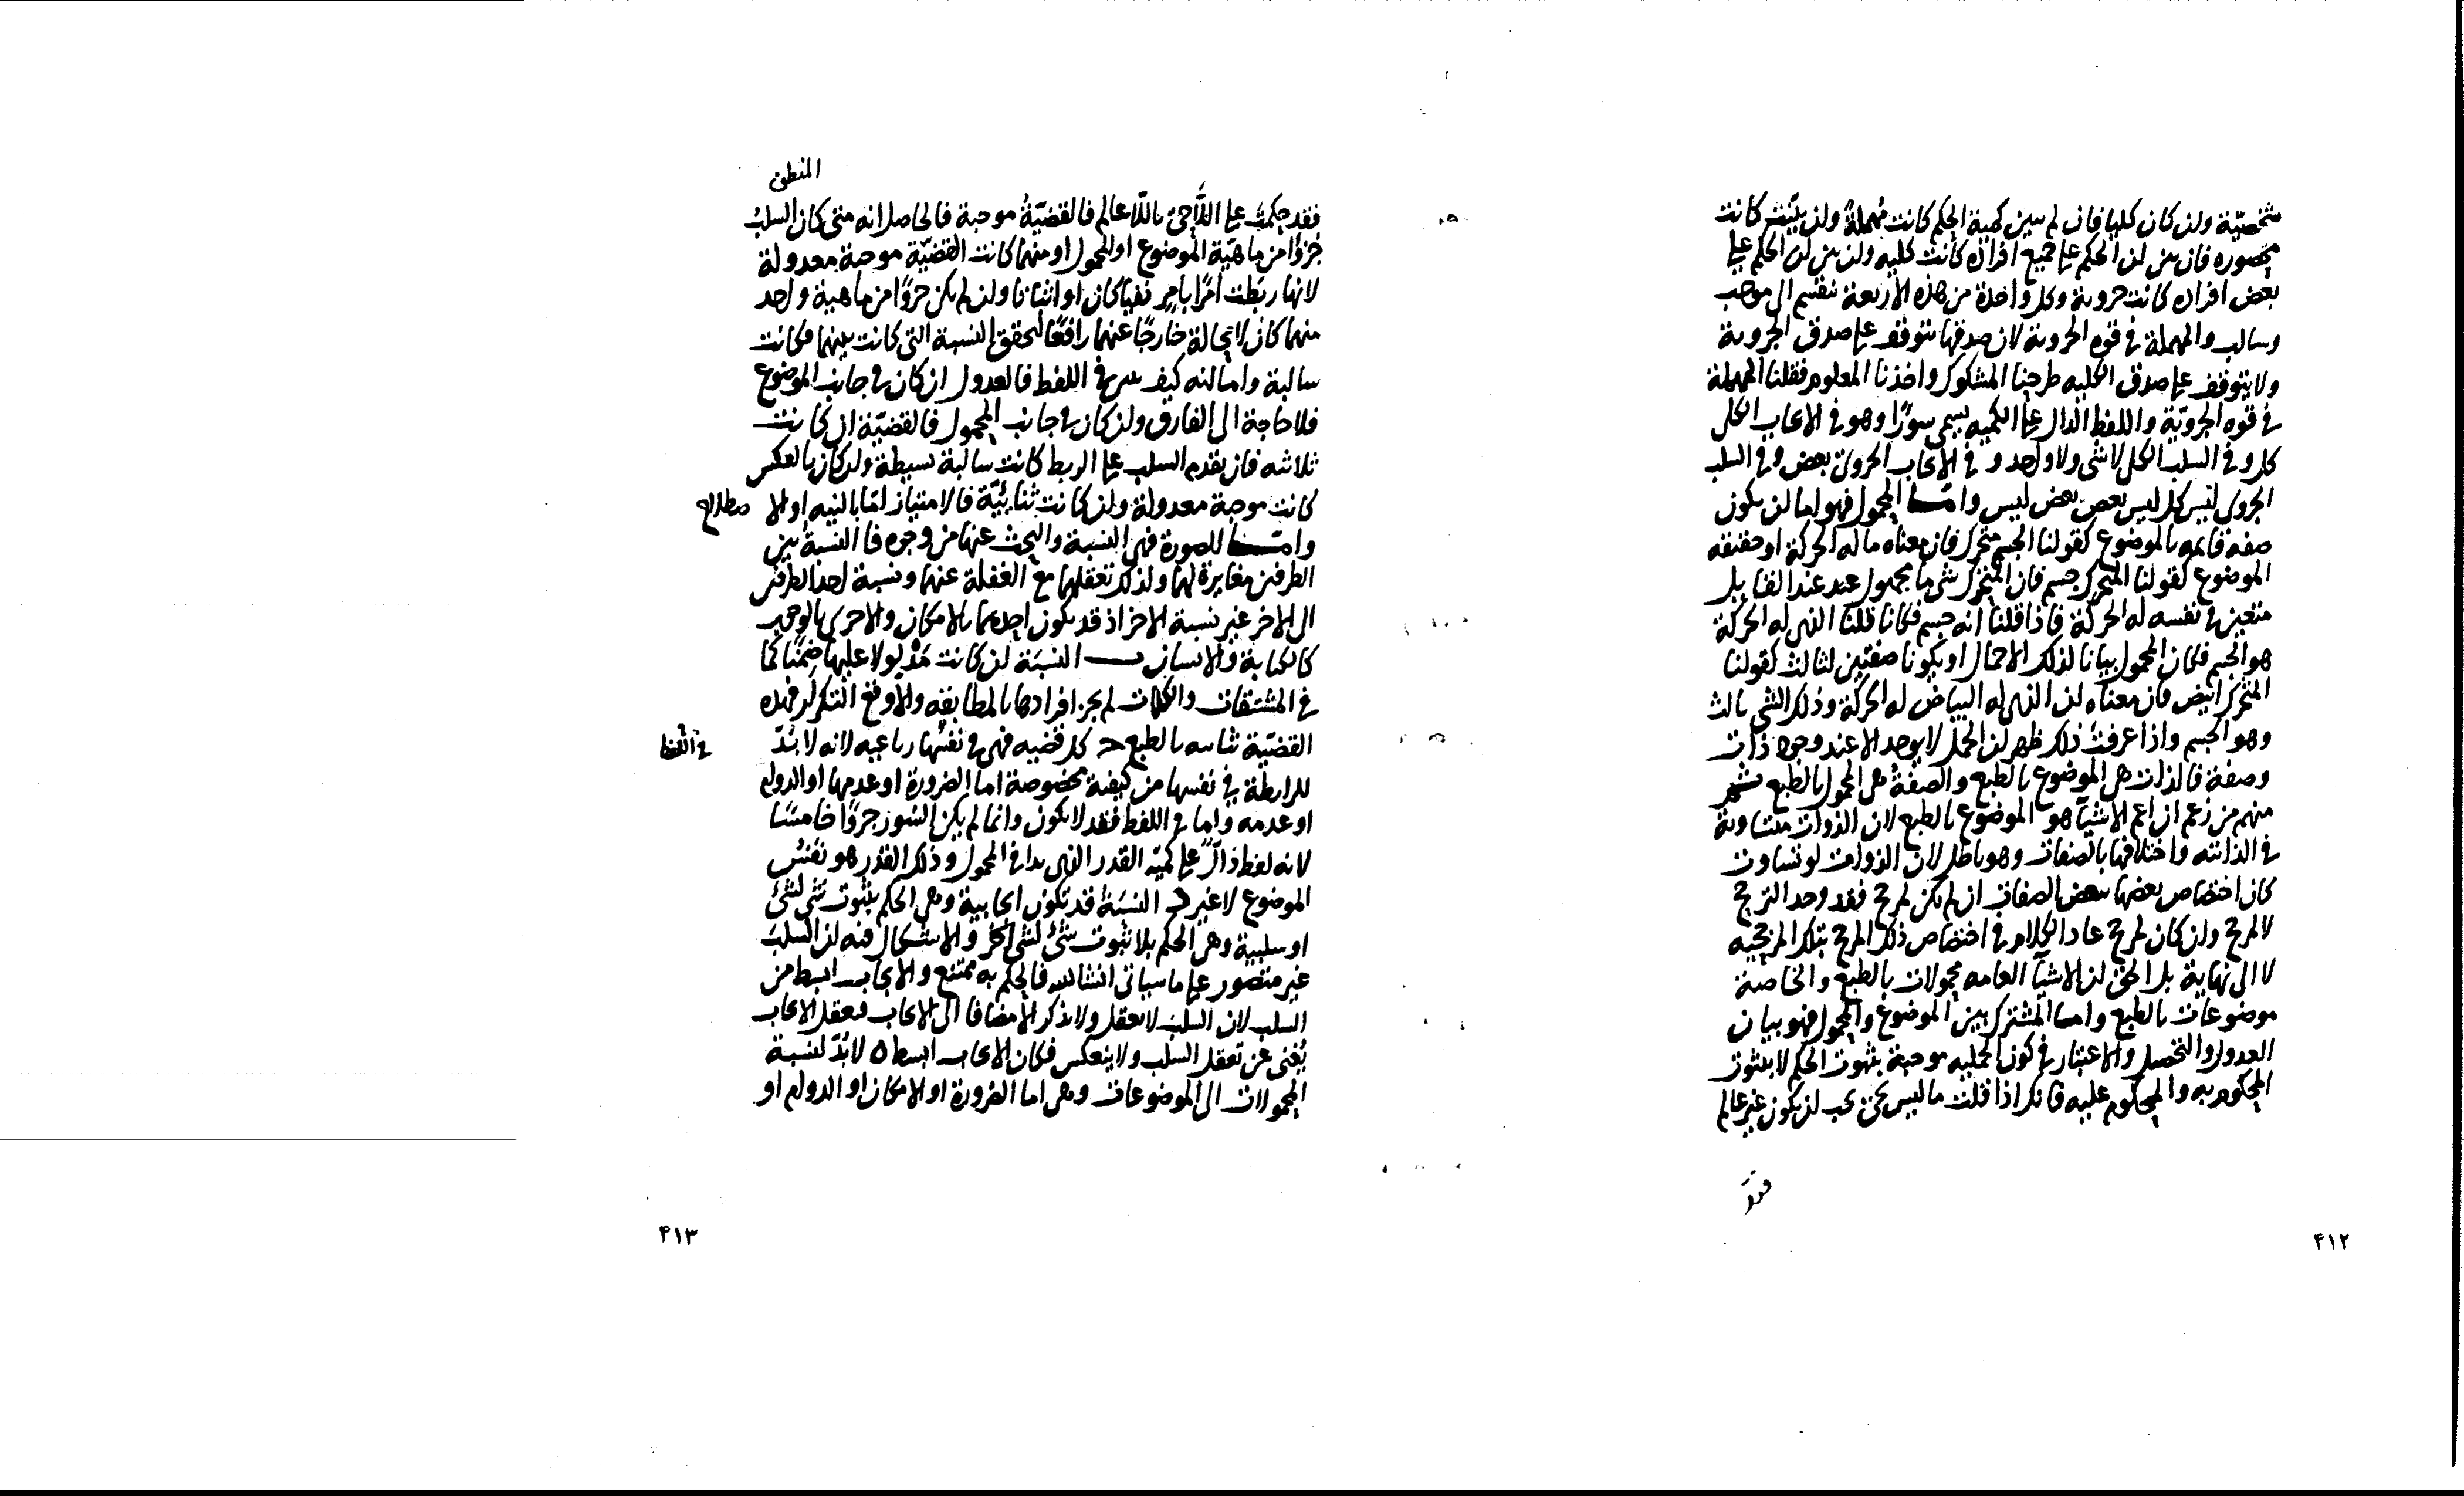 شخصيّة ولن كان كليا فان لم يبين كمية الحكم كانت مُهملةً ولن بيّنت كانت
محصوره فان بين لن الحكم على جميع افراده كانت كليه ولن بين لن الحكم على
بعض افراده كانت جزوية وكل واحدة من هذه الاربعة تنقسم الى موجب
وسالب والمهملة في قوه الجزوية لان صدقها يتوقف على صدق الجزوية
ولا يتوقف على صدق الكليه طرحنا المشكوك واخذنا المعلوم فقلنا المهملة
في قوه الجزويّة واللفظ الدال على الكميه يسمى سورًا وهو في الايجاب الكلي
كل وفي السلب الكلي لا شى ولا واحد وفي الايجاب الجزوى بعض وفي السلب
الجزوى ليس كل ليس بعض بعض ليس وامـا المحمول فهو اما لن يكون
صفه قايمه بالموضوع كقولنا الجسم متحرك فان معناه ما له الحركة او حقيقه
الموضوع كقولنا المتحرك جسم فان المتحرك شى ما مجهول عند القايل
متعين في نفسه له الحركة فاذا قلنا انه جسم فكانا قلنا الذى له الحركة
هو الجسم فكان المحمول بيانا لذلك الاجمال او يكونا صفتين لثالث كقولنا
المتحرك ابيض فان معناه لن الذى له البياض له الحركة وذلك الشى ثالث
وهو الجسم واذا عرفت ذلك ظهر لن الحمل لا يوجد الا عند وجود ذات
وصفة فالذات هى الموضوع بالطبع والصفة هى المحمول بالطبع
منهم من زعم ان اعم الاشيآ هو الموضوع بالطبع لان الذوات متساوية
في الذاتيه واختلافها بالصفات وهو باطل لان الذوات لو تساوت
كان اختصاص بعضها ببعض الصفات ان لم يكن لمرجح فقد وجد الترجح
لا لمرجح ولن كان لمرجح عاد الكلام في اختصاص ذلك المرجح بتلك المرجحيه
لا الى نهاية بل الحق لن الاشيآ العامه محمولات بالطبع والخاصة
موضوعات بالطبع وامـا المشترك بين الموضوع والمحمول فهو بيان
العدول والتحصيل والاعتبار في كون الحمليه موجبة بثبوت الحكم لا بثبوت
المحكوم به والمحكوم عليه فانك اذا قلت ما ليس بحي يجب لن يكون غير عالم
فقد
۴۱۲
المنطق
فقد حكمت على اللَّاحيّ باللّا عالم فالقضيّةُ موجبة فالحاصل انه متى كان السلبُ
جُزوًا من ماهيّة الموضوع او المحمول او منهما كانت القضيّة موجبة معدولة
لانها ربطت امرًا بامرٍ نفيا كان او اثباتا ولن لم يكن جزوًا من ماهية واحد
منهما كان لا محالة خارجًا عنهما رافعًا لتحقق النسبة التى كانت بينهما فكانت
سالبة واما انه كيف في اللفظ فالعدول ان كان في جانب الموضوع
فلا حاجة الى الفارق ولن كان في جانب المحمول فالقضيّة ان كانت
ثلاثيه فان يقدم السلب على الربط كانت سالبة بسيطة ولن كان بالعكس
كانت موجبة معدولة ولن كانت ثنائيّة فالامتياز امّا بالنيه او الاصطلاح
وامـا للصورة فهى النسبة والبحث عنها من وجوه فا النسبةُ بين
الطرفين مغايرة لهما ولذلك تعقلهما مع الغفلة عنها ونسبة احد الطرفين
الى الاخر غير نسبة الاخر اذ قد يكون احدهما بالامكان والاخرى بالوجوب
كالكتابة والانسان ب النسبَة لن كانت مَدْلولا عليها ضِمْنًا كما
في المشتقات والكلمات لم يجز افرادها بالمطابقه والا وقع التكرار فهذه
القضيّة ثنائيه بالطبع جـ كل قضيه فهى في نفسها رباعيه لانه لا بُدّ
في اللفظ
للرابطة في نفسها من كيفية مخصوصة اما الضرورة او عدمها او الدوام
او عدمه واما في اللفظ فقد لا يكون وانما لم يكن السُور جزوًا خامسًا
لانه لفظ دالّ على كميّه القدر الذى بدا في المحمول وذلك القدر هو نفسُ
الموضوع لا غير د النسبَةُ قد تكون ايجابية وهى الحكم بثبوت شى لشئ
او سلبية وهى الحكم بلا ثبوت شئ لشئ اخر والاشكال فيه لن السلب
غير متصور على ما سياتى انشاالله فالحكم به ممتنع والايجاب ابسط من
السلب لان السلب لا يعقل ولا يذكر الا مضافا الى الايجاب فتعقل الايجاب
يُغنى عن تعقل السلب ولا ينعكس فكان الايجاب ابسط ه لا بُدّ لنسبة
المحمولات الى الموضوعات وهى اما الضرورة او الامكان او الدوام او
۴۱۳